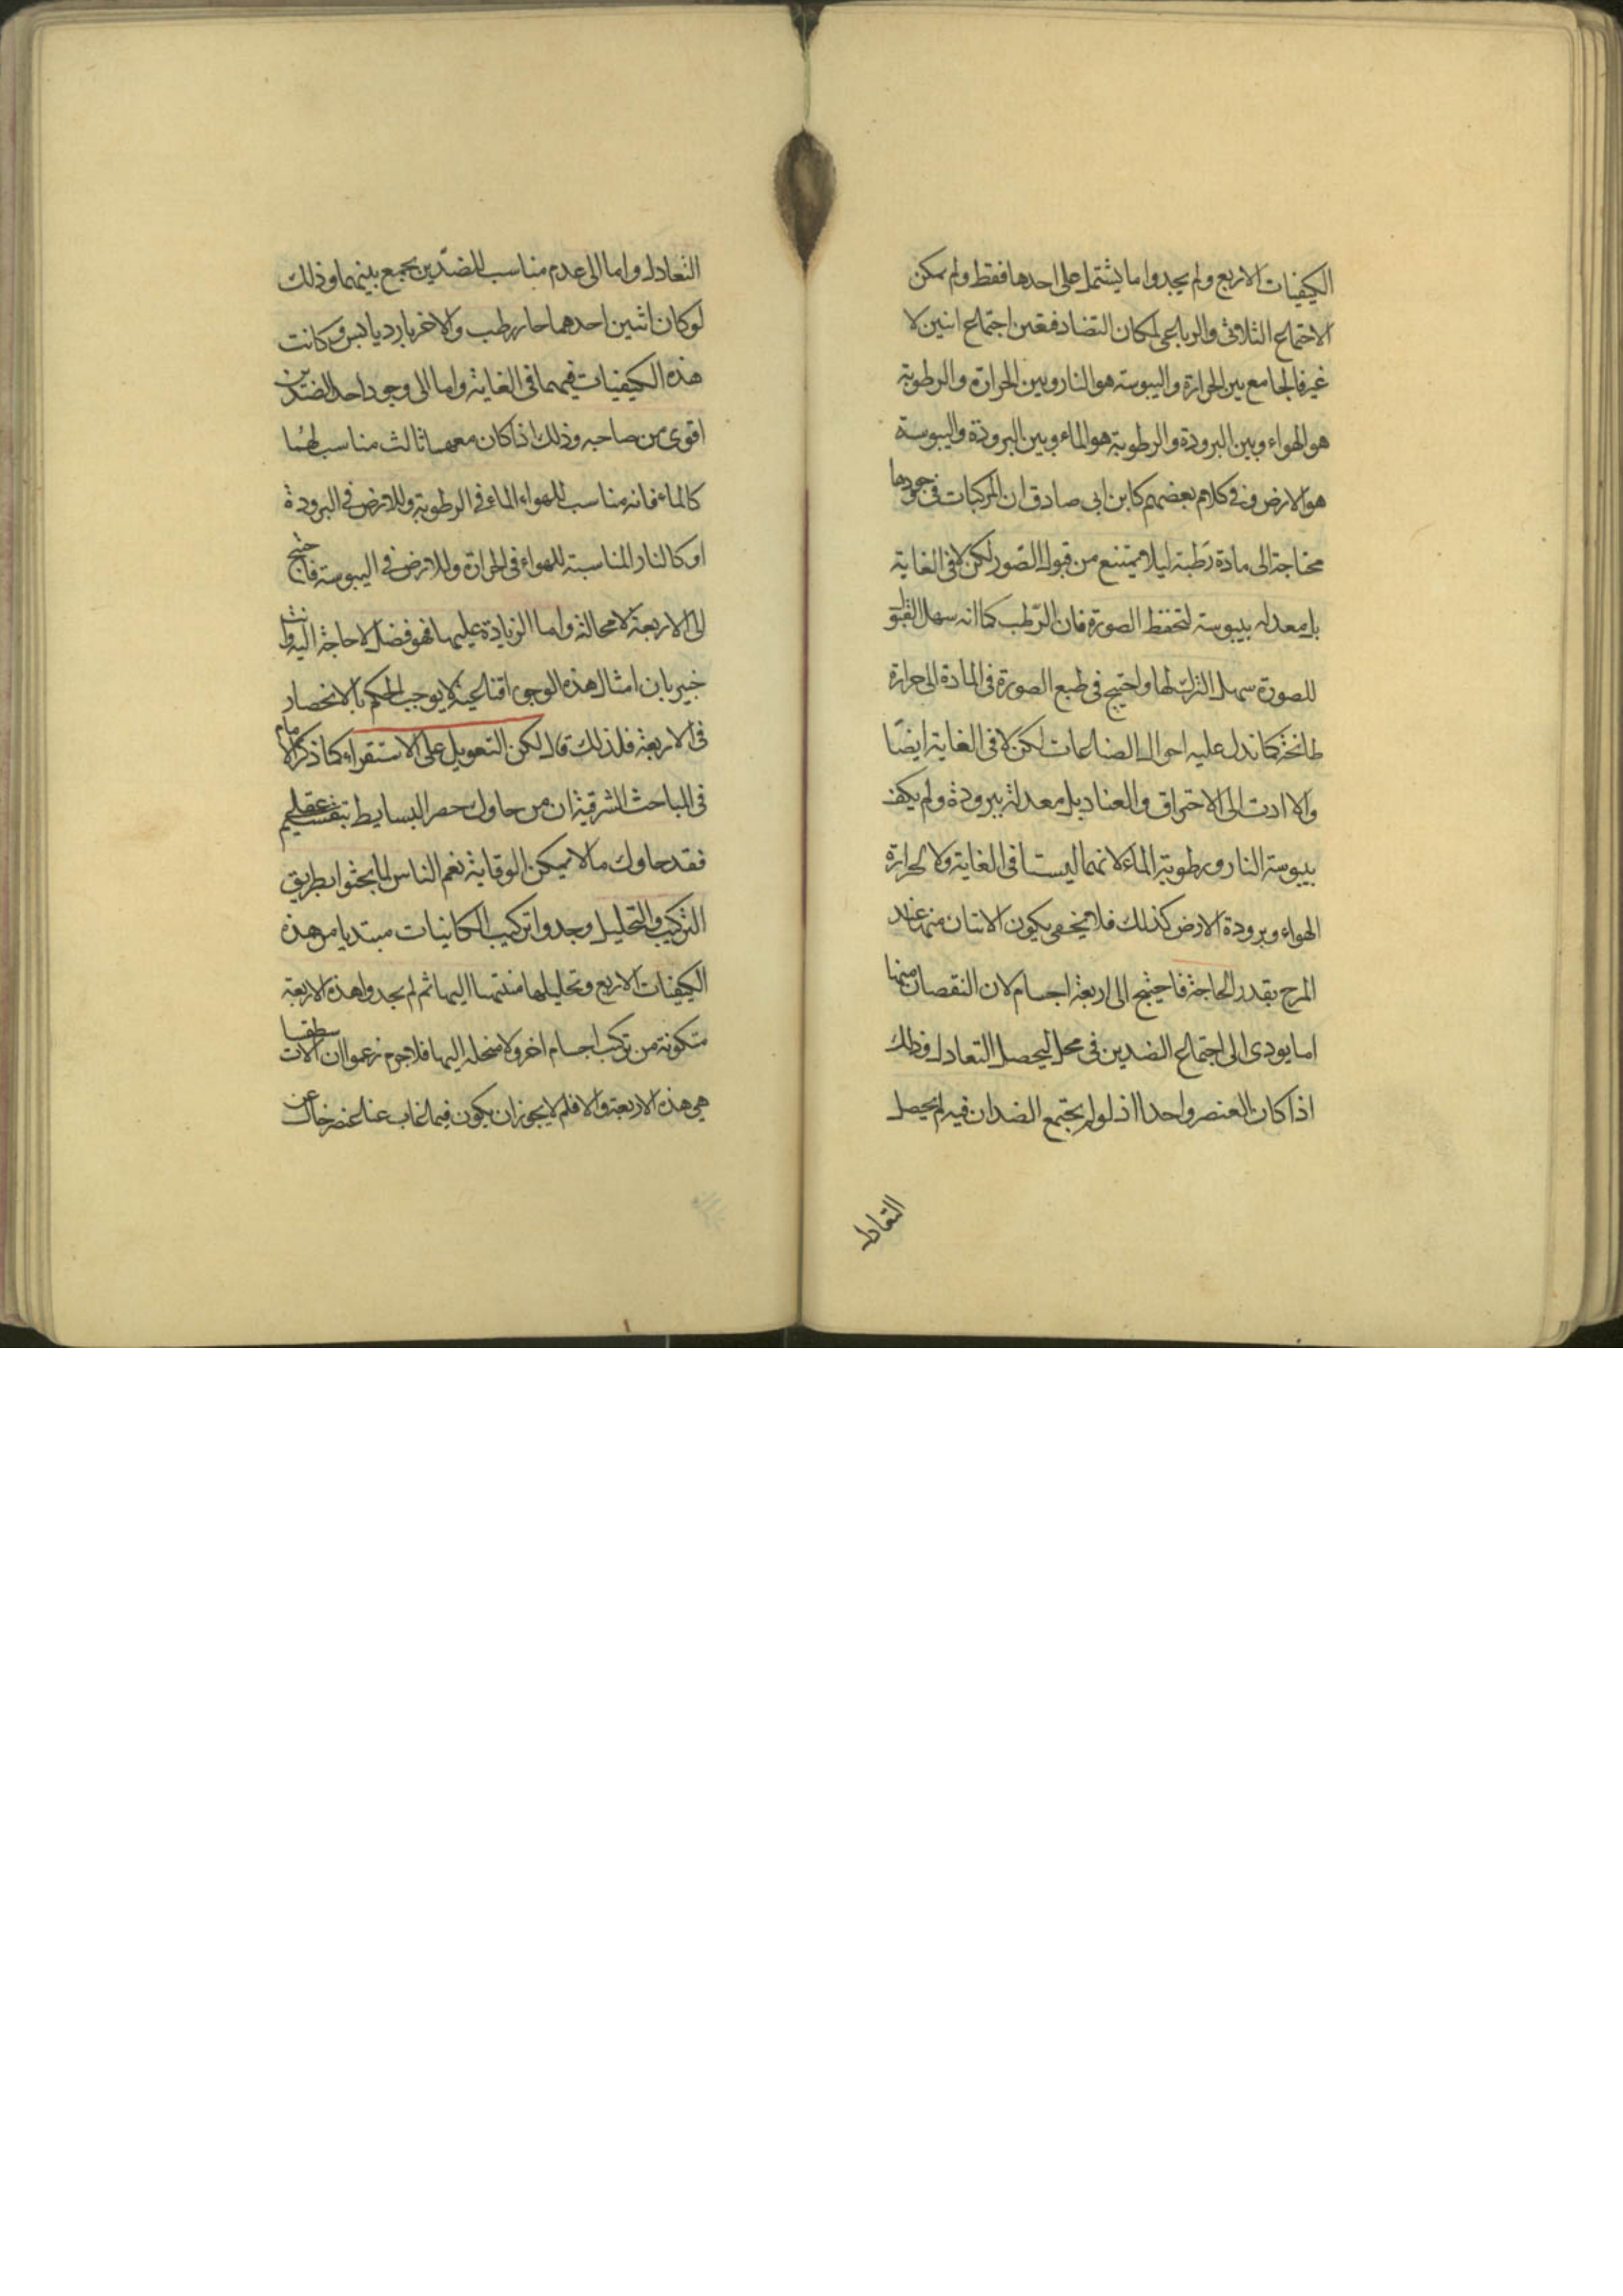 الكيفيات الاربع ولم يجدوا ما يشتمل على احدها فقط ولم يمكن
الاجتماع الثلاثى والرباعى لمكان التضاد فتعين اجتماع اثنين لا
غير فالجامع بين الحرارة واليبوسة هو النار وبين الحرارة والرطوبة
هو الهواء وبين البرودة والرطوبة هو الماء وبين البرودة واليبوسة
هو الارض وفى كلام بعضهم كابن ابى صادق ان المركبات فى وجودها
محتاجة الى مادة رطبة ليلا يمتنع من قبول الصور لكن لا فى الغاية
بل معدله بيبوسة لتحفظ الصورة فان الرطب كما انه سهل القبول
للصورة سهل الترك لها واحتيج فى طبع الصورة فى المادة الى حرارة
طابخة كما تدل عليه احوال الصناعات لكن لا فى الغاية ايضا
والا ادت الى الاحتراق والعناد بل معدلة ببرودة ولم يكف
بيبوسة النار ورطوبة الماء لانهما ليستا فى الغاية ولا لحرارة
الهواء وبرودة الارض كذلك فلا يخفى يكون الاثنان منهما عند
المزج بقدر الحاجة فاحتيج الى اربعة اجسام لان النقصان منها
اما يودى الى اجتماع الضدين فى محل ليحصل التعادل وذلك
اذا كان العنصر واحدا اذ لو لم يجتمع الضدان فيه لم يحصل
التعادل
التعادل واما الى عدم مناسب للضدين يجمع بينهما وذلك
لو كان اثنين احدهما حار رطب والاخر بارد يابس وكانت
هذه الكيفيات فيهما فى الغاية واما الى وجود احد الضدين
اقوى من صاحبه وذلك اذا كان معهما ثالث مناسب لهما
كالماء فانه مناسب للهواء الماء فى الرطوبة وللارض فى البرودة
او كالنار المناسبة للهواء فى الحرارة وللارض فى اليبوسة فاحتيج
الى الاربعة لا محالة واما الزيادة عليها فهو فضل لا حاجة اليه وانت
خبير بان امثال هذه الوجوه اقناعية لا يوجب الحكم بالانحصار
فى الاربعة فلذلك قال لكن التعويل على الاستقراء كما ذكر الامام
فى المباحث المشرقية ان من حاول حصر البسايط بتقسيم عقلى
فقد حاول ما لا يمكن الوقاية نعم الناس لما بحثوا بطريق
التركيب والتحليل وجدوا تركيب الكاينات مبتديا من هذه
الكيفيات الاربع وتحليلها منتهيا اليها ثم لم يجدوا هذه الاربعة
متكونة من تركب اجسام اخر ولا منحله اليها فلا جرم زعموا ان الاسطقسات
هى هذه الاربعة والا فلم لا يجوز ان يكون فيما غاب عنا عنصر خال عن